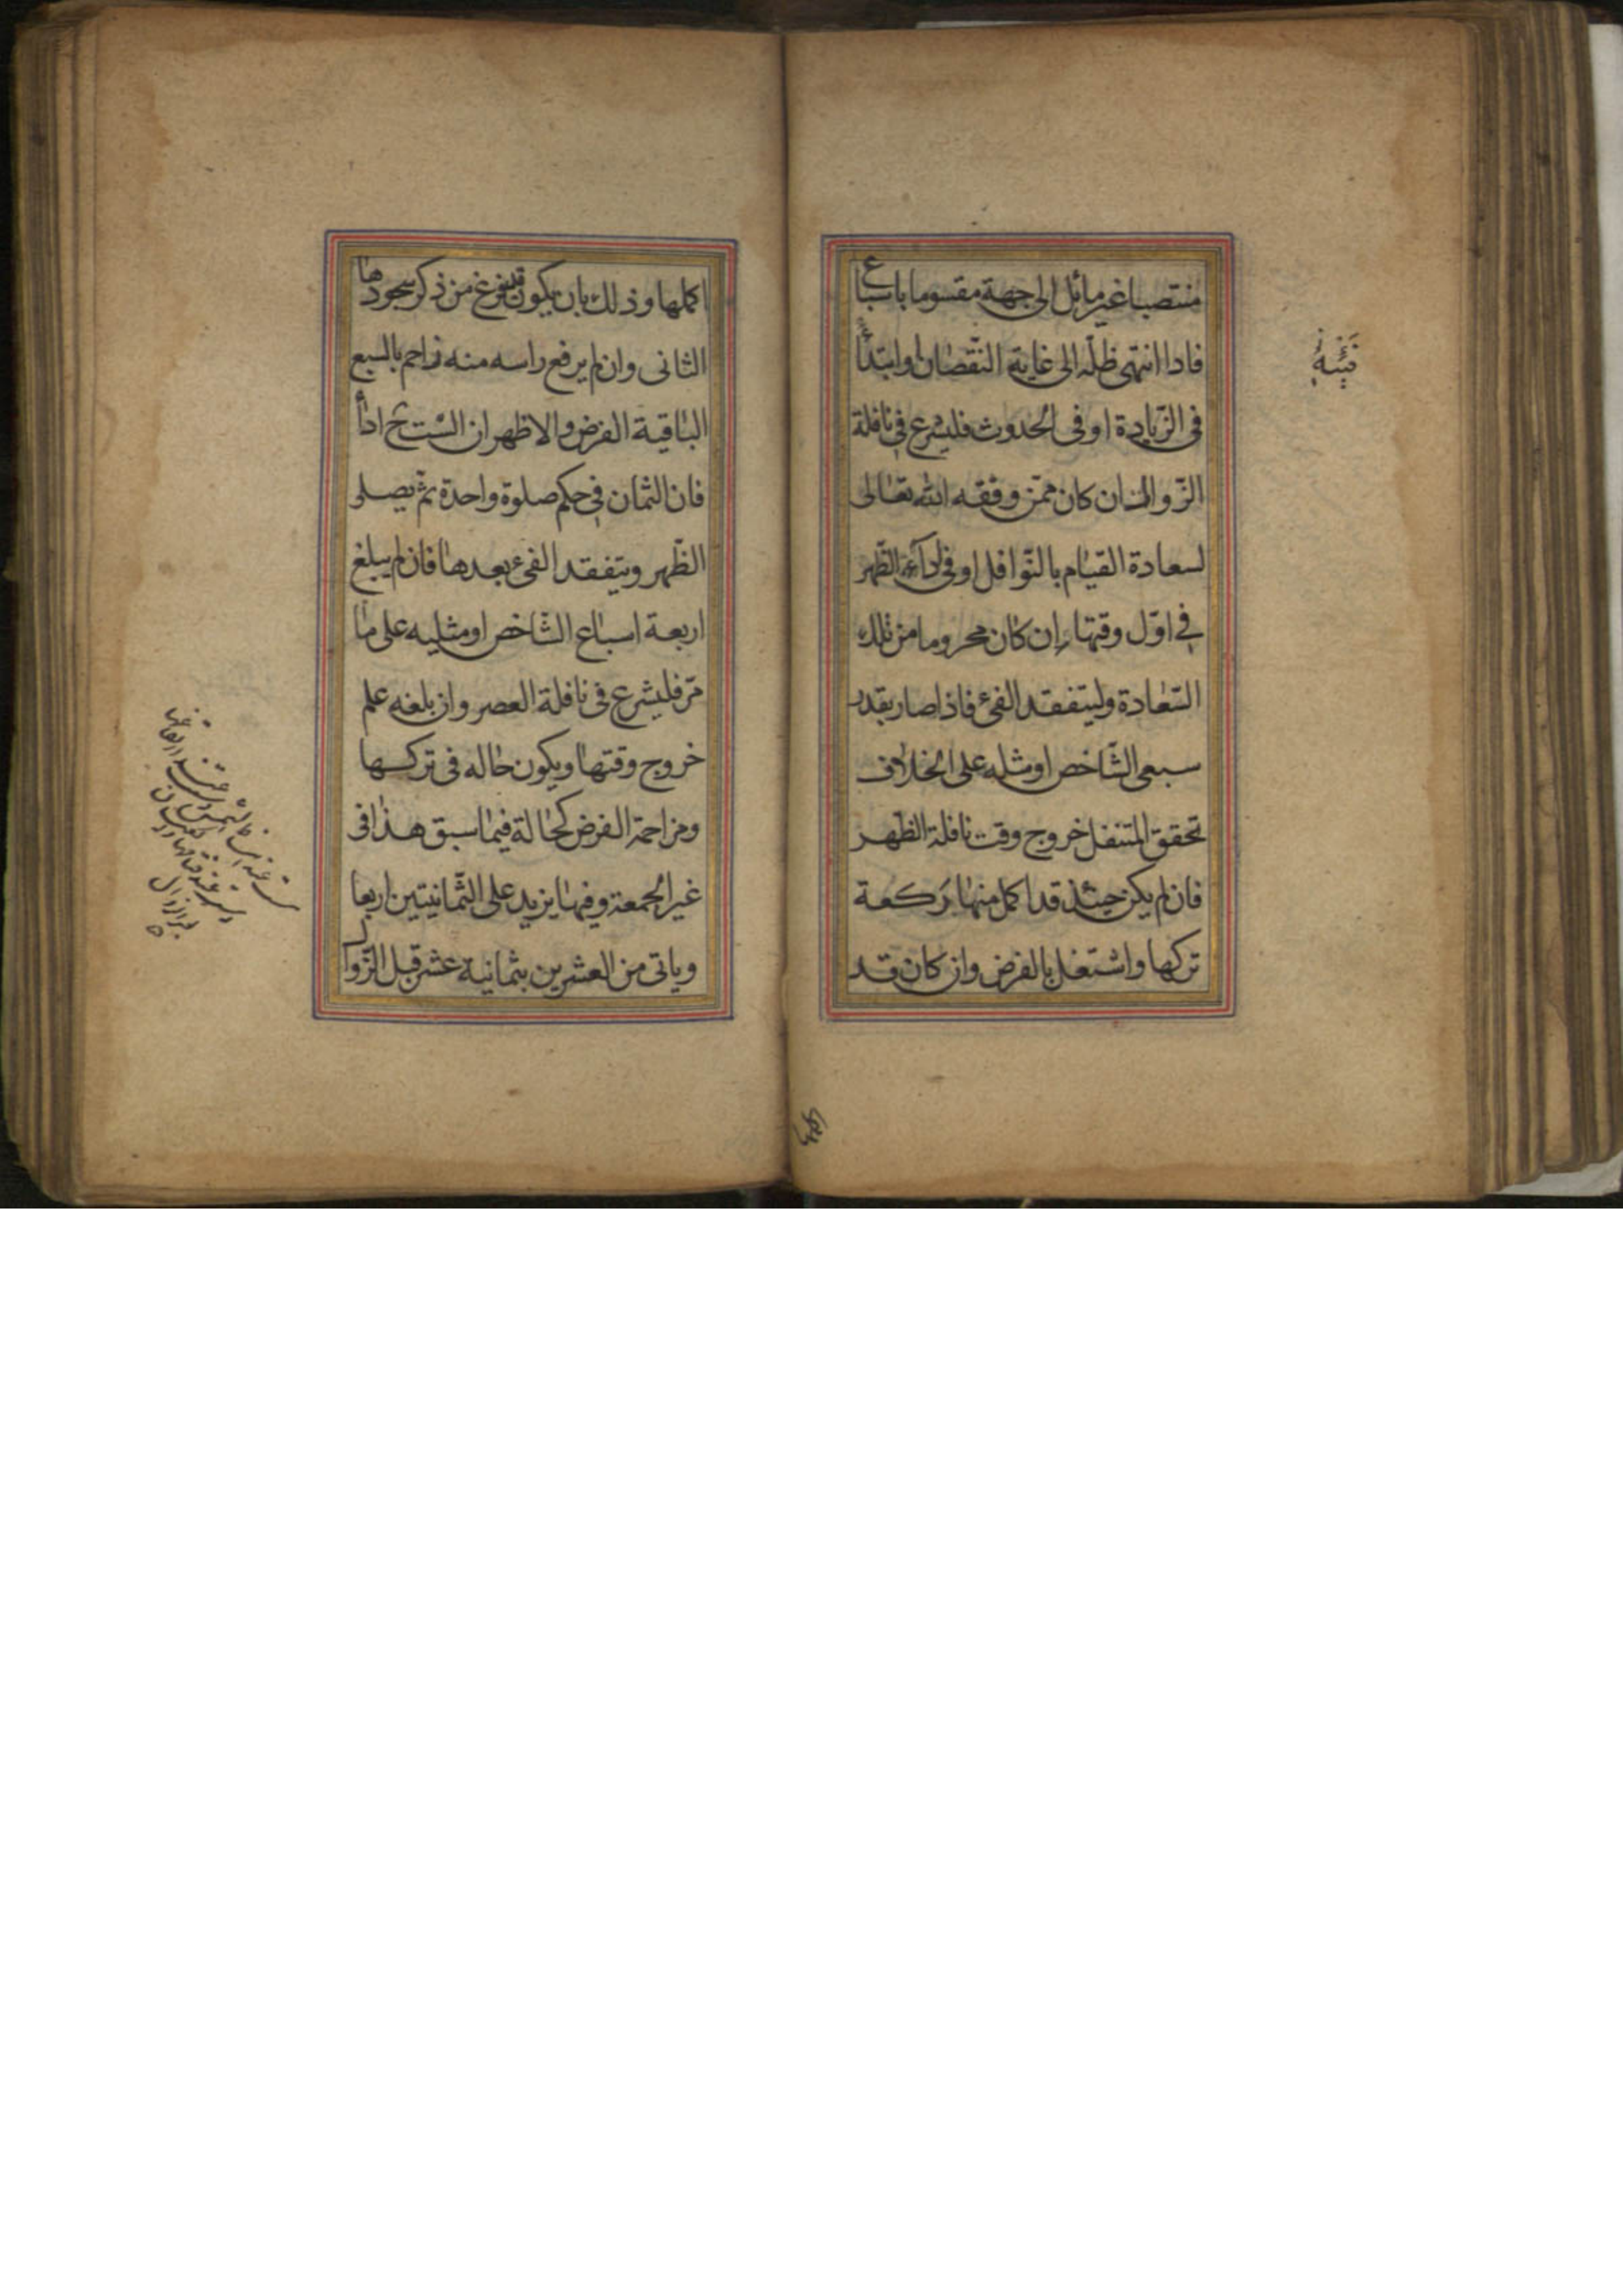 منتصبا غير مائل الى جهة مقسوما باسباع
فاذا انتهى ظلّه الى غاية النّقصان او ابتدأ
فى الزّيادة او فى الحدوث فليشرع فى نافلة
الزّوال ان كان ممّن وفقه الله تعالى
لسعادة القيام بالنّوافل او فى اداء الظّهر
فى اوّل وقتها ان كان محروما من تلك
السّعادة وليتفقد الفئ فاذا صار بقدر
سبعى الشّاخص او مثله على الخلاف
تحقق المتنفل خروج وقت نافلة الظّهر
فان لم يكن حينئذ قد اكمل منها ركعة
تركها واشتغل بالفرض وان كان قد
اكملها وذلك بان يكون قد فرغ من ذكر سجودها
الثانى وان لم يرفع راسه منه زاحم بالسبع
الباقية الفرض والاظهر ان الست ح اداء
فان الثمان فى حكم صلوة واحدة ثم يصلى
الظّهر ويتفقد الفئ بعدها فان لم يبلغ
اربعة اسباع الشّاخص او مثليه على ما
مرّ فليشرع فى نافلة العصر وان بلغه علم
خروج وقتها ويكون حاله فى تركها
ومزاحمة الفرض كحالة فيما سبق هذا فى
غير الجمعة وفيها يزيد على الثّمانيتين اربعا
وياتى من العشرين بثمانية عشر قبل الزّوال